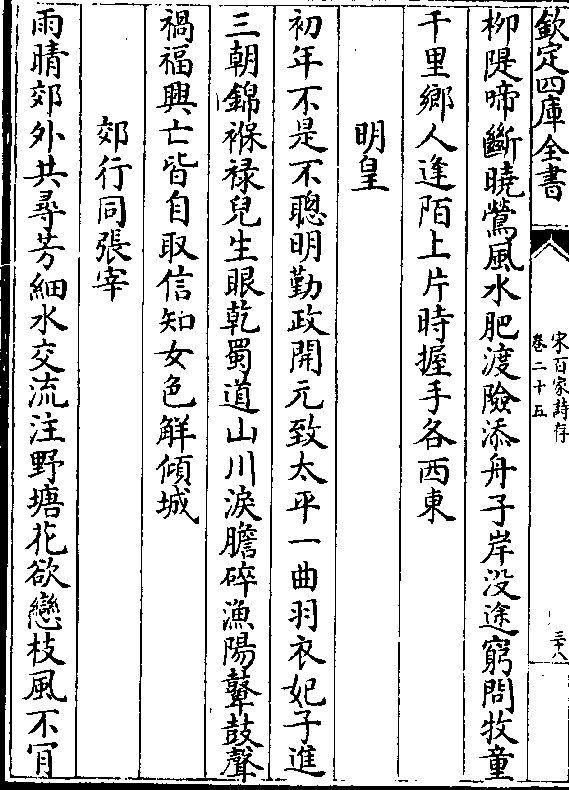 欽定四庫全書
宋百家詩存
卷二十五
三十八
柳隄啼斷曉鶯風水肥渡險添舟子岸没途窮問牧童
千里鄉人逢陌上片時握手各西東
明皇
初年不是不聰明勤政開元致太平一曲羽衣妃子進
三朝錦褓禄兒生眼乾蜀道山川淚膽碎漁陽鼙鼓聲
禍福興亡皆自取信知女色解傾城
郊行同張宰
雨晴郊外共尋芳細水交流注野塘花欲戀枝風不肎